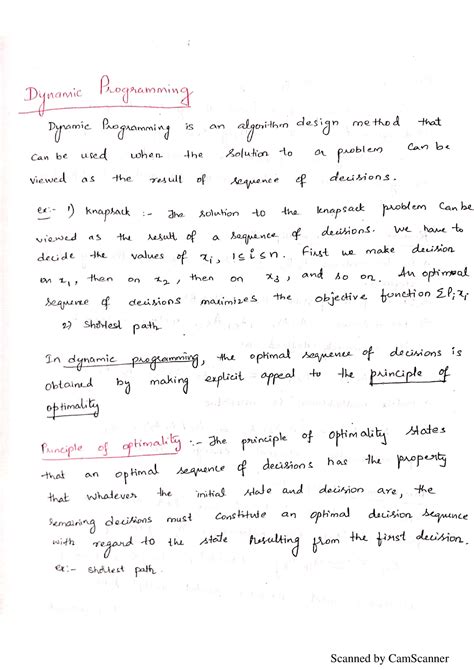 Dynamic Programming
Dynamic Programming is an algorithm design method that
can be used when the solution to a problem can be
viewed as the result of sequence of decisions.
ex:- 1) knapsack :- The solution to the knapsack problem can be
viewed as the result of a sequence of decisions. We have to
decide the values of xi, 1≤i≤n. First we make decision
on x1, then on x2, then on x3, and so on. An optimal
sequence of decisions maximizes the objective function ΣPixi
2) Shortest path.
In dynamic programming, the optimal sequence of decisions is
obtained by making explicit appeal to the principle of
optimality
Principle of optimality :- The principle of optimality states
that an optimal sequence of decisions has the property
that whatever the initial state and decision are, the
remaining decisions must constitute an optimal decision sequence
with regard to the state resulting from the first decision.
ex:- shortest path.
Scanned by CamScanner